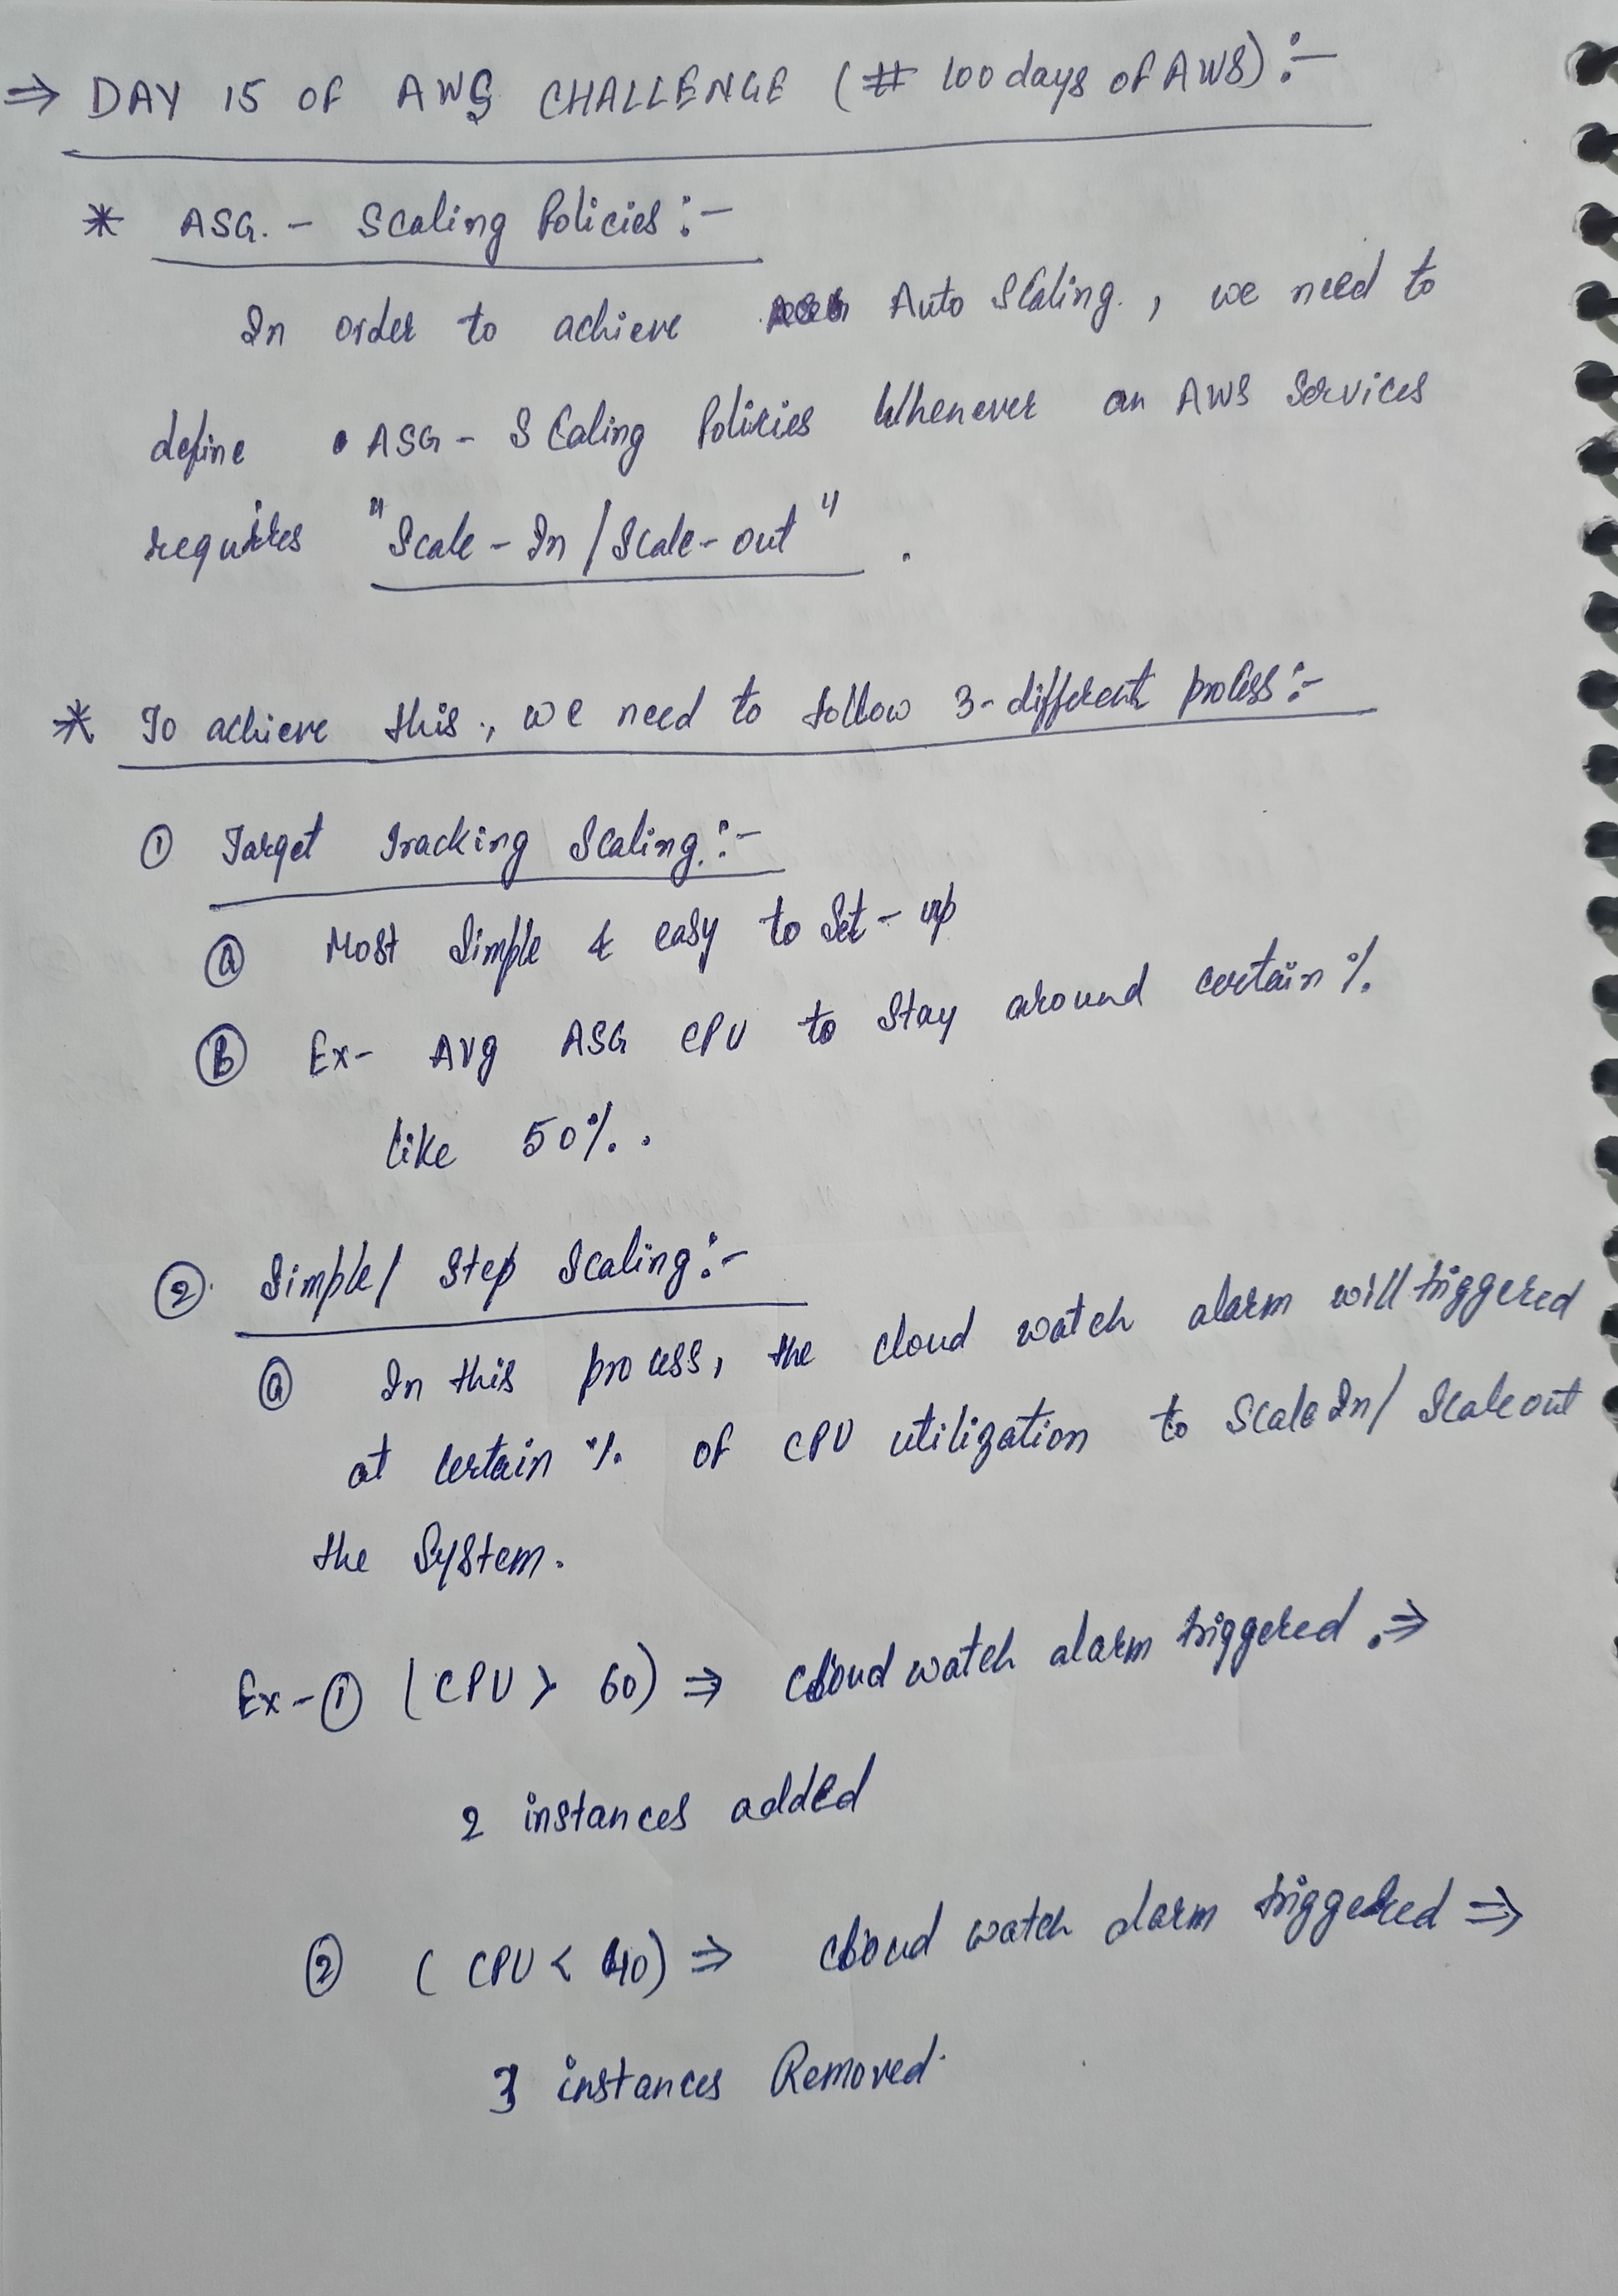 ⇒ DAY 15 OF AWS CHALLENGE (# 100 days of AWS) :-
* ASG. - Scaling Policies :-
In order to achieve Auto Scaling., we need to
define ASG - Scaling Policies Whenever an AWS Services
requires "Scale - In / Scale - out" .
* To achieve this., we need to follow 3- different process :-
① Target Tracking Scaling. :-
ⓐ Most Simple & easy to Set - up
Ⓑ Ex- Avg ASG CPU to Stay around certain %.
like 50%. .
②. Simple / Step Scaling :-
ⓐ In this process, the cloud watch alarm will triggered
at certain %. of CPU utilization to Scale In / Scale out
the System.
Ex - ① ( CPU > 60) ⇒ cloud watch alarm triggered . ⇒
2 instances added
② ( CPU < 40) ⇒ cloud watch alarm triggered ⇒
3 instances Removed.